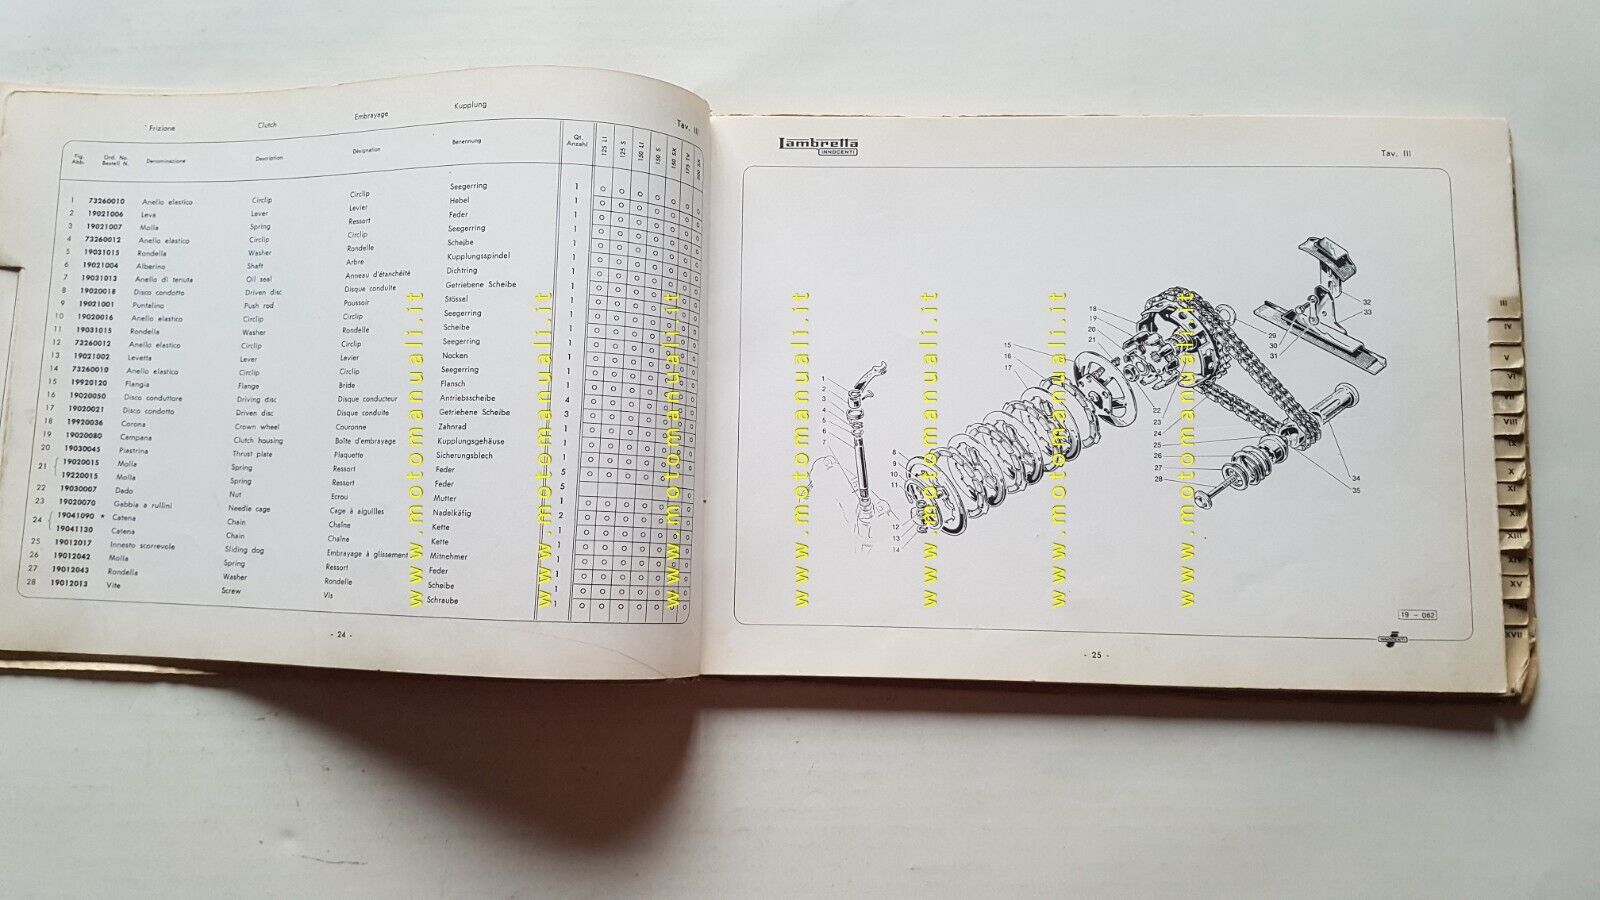 Frizione Clutch Embrayage Kupplung
Tav. III
Fig. Abb. Ord. No. Bestell N. Denominazione Description Désignation Benennung Qt. Anzahl 125 LI 125 S 150 LI 150 S 150 SX 175 TV 200 SX
1 73260010 Anello elastico Circlip Circlip Seegerring 1
2 19021006 Leva Lever Levier Hebel 1
3 19021007 Molla Spring Ressort Feder 1
4 73260012 Anello elastico Circlip Circlip Seegerring 1
5 19031015 Rondella Washer Rondelle Scheibe 1
6 19021004 Alberino Shaft Arbre Kupplungsspindel 1
7 19031013 Anello di tenuta Oil seal Anneau d'étanchéité Dichtring 1
8 19020018 Disco condotto Driven disc Disque conduite Getriebene Scheibe 1
9 19021001 Puntalino Push rod Poussoir Stössel 1
10 19020016 Anello elastico Circlip Circlip Seegerring 1
11 19031015 Rondella Washer Rondelle Scheibe 1
12 73260012 Anello elastico Circlip Circlip Seegerring 1
13 19021002 Levetta Lever Levier Nocken 1
14 73260010 Anello elastico Circlip Circlip Seegerring 1
15 19920120 Flangia Flange Bride Flansch 1
16 19020050 Disco conduttore Driving disc Disque conducteur Antriebsscheibe 4
17 19020021 Disco condotto Driven disc Disque conduite Getriebene Scheibe 3
18 19920036 Corona Crown wheel Couronne Zahnrad 1
19 19020080 Campana Clutch housing Boîte d'embrayage Kupplungsgehäuse 1
20 19030045 Piastrina Thrust plate Plaquette Sicherungsblech 1
21 19020015 Molla Spring Ressort Feder 5
19220015 Molla Spring Ressort Feder 5
22 19030007 Dado Nut Ecrou Mutter 1
23 19020070 Gabbia a rullini Needle cage Cage à aiguilles Nadelkäfig 2
24 19041090 * Catena Chain Chaîne Kette 1
19041130 Catena Chain Chaîne Kette 1
25 19012017 Innesto scorrevole Sliding dog Embrayage à glissement Mitnehmer 1
26 19012042 Molla Spring Ressort Feder 1
27 19012043 Rondella Washer Rondelle Scheibe 1
28 19012013 Vite Screw Vis Schraube 1
- 24 -
Lambrella
INNOCENTI
Tav. III
1
2
3
4
5
6
7
8
9
10
11
12
13
14
15
16
17
18
19
20
21
22
23
24
25
26
27
28
29
30
31
32
33
34
35
19 - 062
INNOCENTI
- 25 -
III
IV
V
VI
VII
VIII
IX
X
XI
XII
XIII
XIV
XV
XVII
www.motomanuali.it
www.motomanuali.it
www.motomanuali.it
www.motomanuali.it
www.motomanuali.it
www.motomanuali.it
www.motomanuali.it